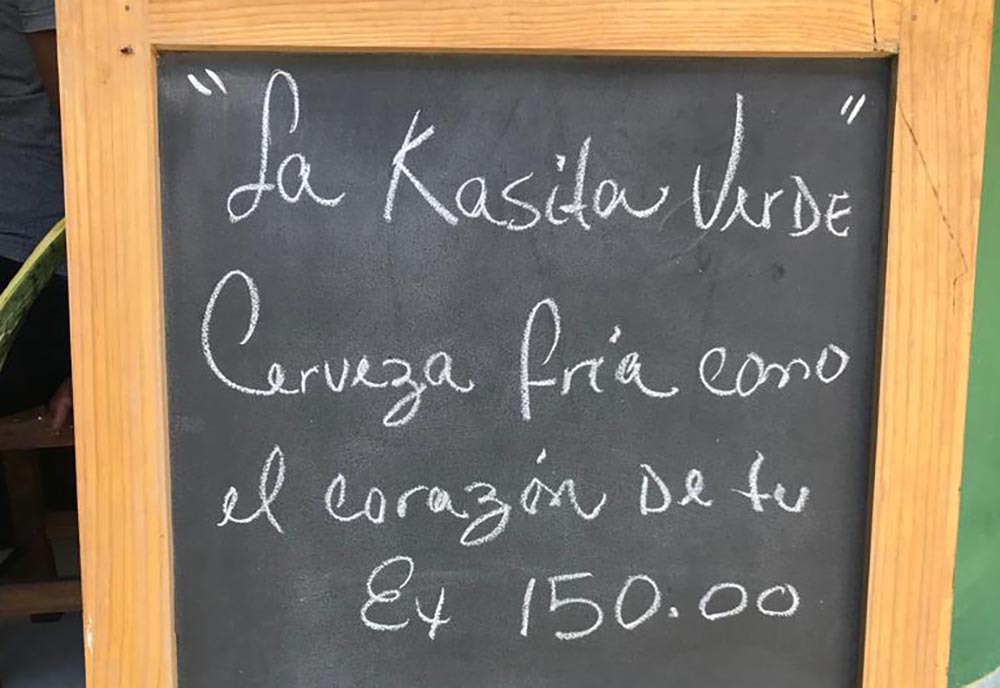 "La Kasita VerDE"
Cerveza fría como
el corazón De tu
Ex 150.00